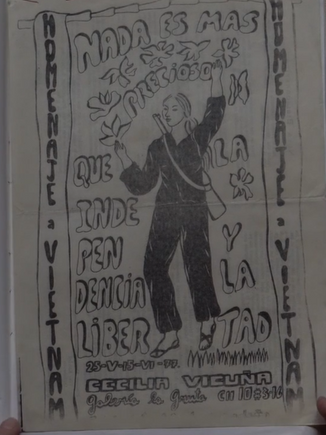 HOMENAJE a VIETNAM
NADA ES MAS
PRECIOSO
QUE LA
INDE
PEN Y
DENCIA LA
LIBER TAD
25-V-15-VI-77.
CECILIA VICUÑA
Galeria la Cll 10 #3-16
HOMENAJE a VIETNAM